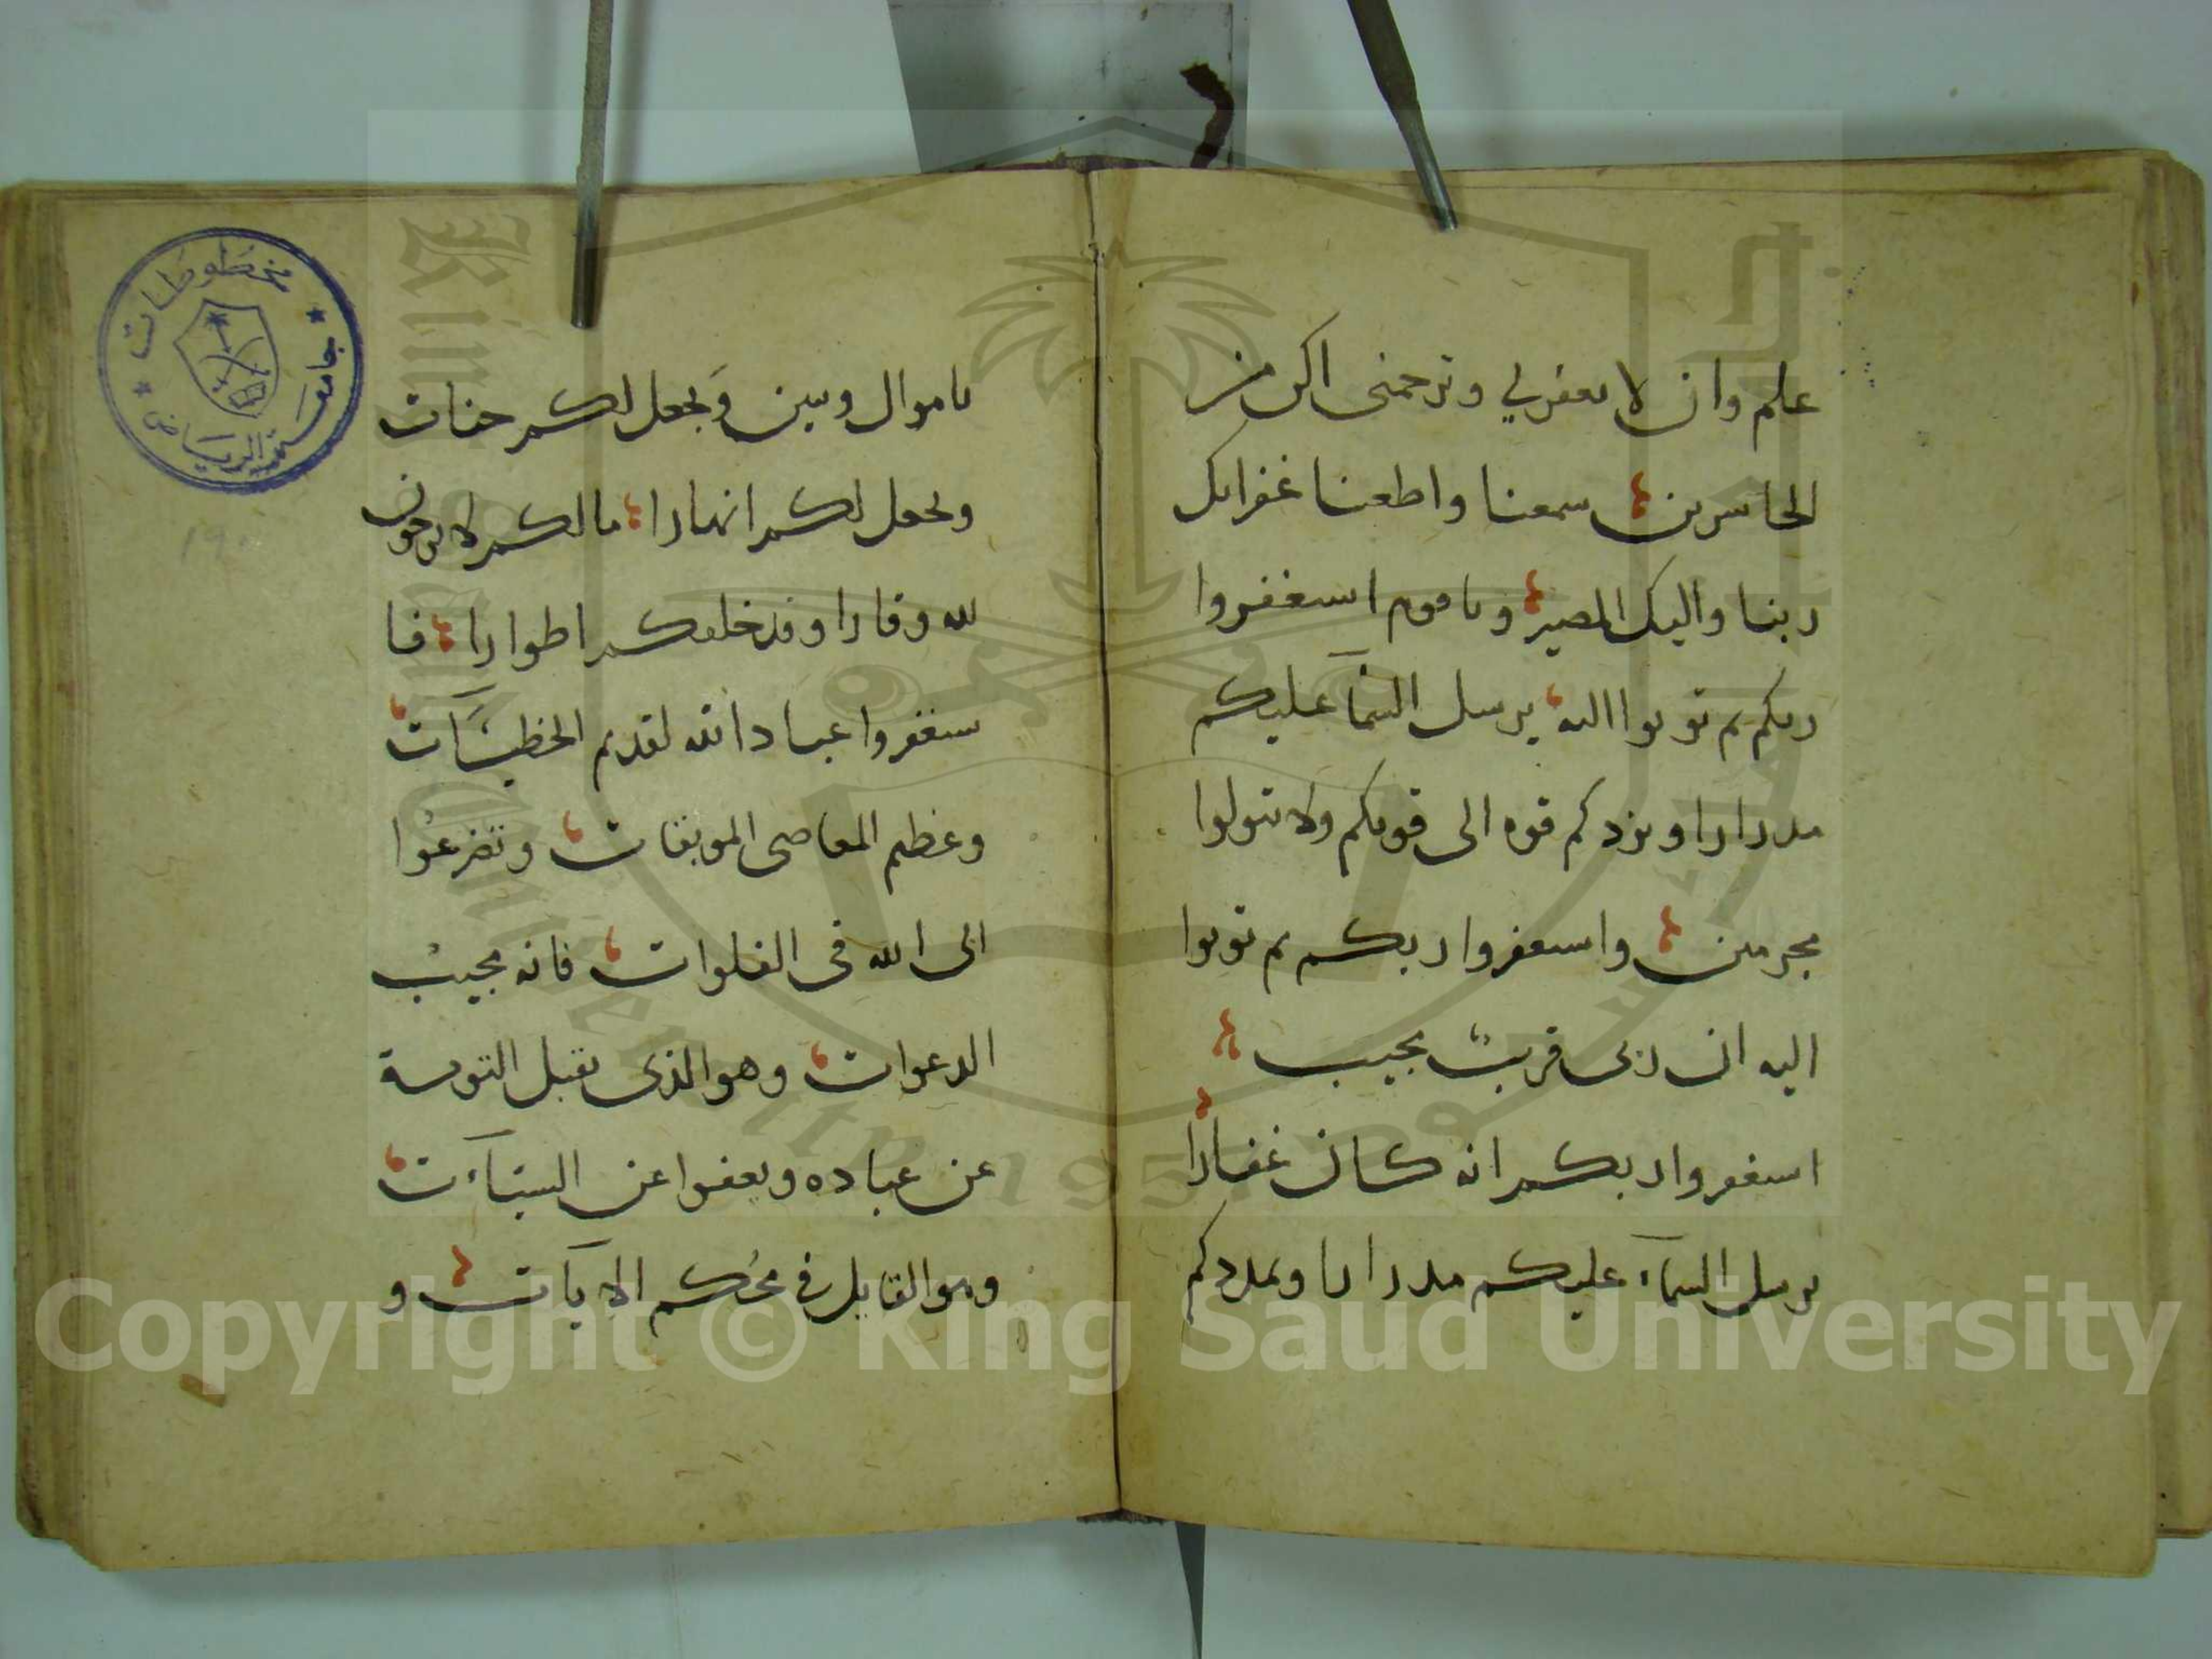 علم وان لا تغفرلي وترحمني اكن من
الخاسرين سمعنا واطعنا غفرانك
ربنا واليك المصير وياقوم استغفروا
ربكم ثم توبوا اليه يرسل السمآ عليكم
مدرارا ويزدكم قوه الى قوتكم ولا تتولوا
مجرمين واستغفروا ربكم ثم توبوا
اليه ان ربى قريب مجيب
استغفروا ربكم انه كان غفارا
يرسل السمآء عليكم مدرارا ويمددكم
باموال وبنين ويجعل لكم جنات
ويجعل لكم انهارا مالكم لا ترجون
لله وقارا وقد خلقكم اطوارا فا
ستغفروا عباد الله لقديم الخطيئات
وعظيم المعاصى الموبقات وتضرعوا
الى الله فى الفلوات فانه مجيب
الدعوات وهو الذى يقبل التوبة
عن عباده ويعفوا عن السيئآت
وهو القايل فى محكم الايآت و
مخطوطات
جامعة الرياض
King Saud University
1957
Copyright © King Saud University